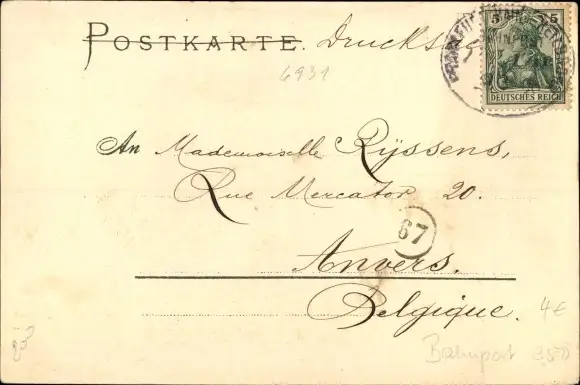 POSTKARTE. Drucksache
5 5
DEUTSCHES REICH
6931
An Mademoiselle Rÿssens,
Rue Mercator 20.
67
Anvers.
Belgique.
4€
Bahnpost 3,50